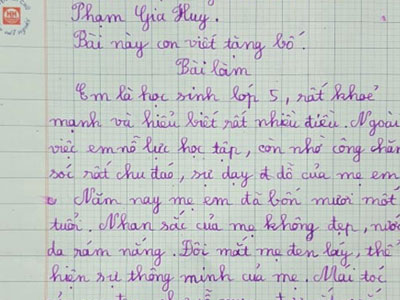 Phạm Gia Huy.
Bài này con viết tặng bố.
Bài làm
Em là học sinh lớp 5, rất khoẻ
mạnh và hiểu biết rất nhiều điều. Ngoài
việc em nỗ lực học tập, còn nhờ công chăm
sóc rất chu đáo, sự dạy dỗ của mẹ em
Năm nay mẹ em đã bốn mươi một
tuổi. Nhan sắc của mẹ không đẹp, nước
da rám nắng. Đôi mắt mẹ đen láy, thể
hiện sự thông minh của mẹ. Mái tóc